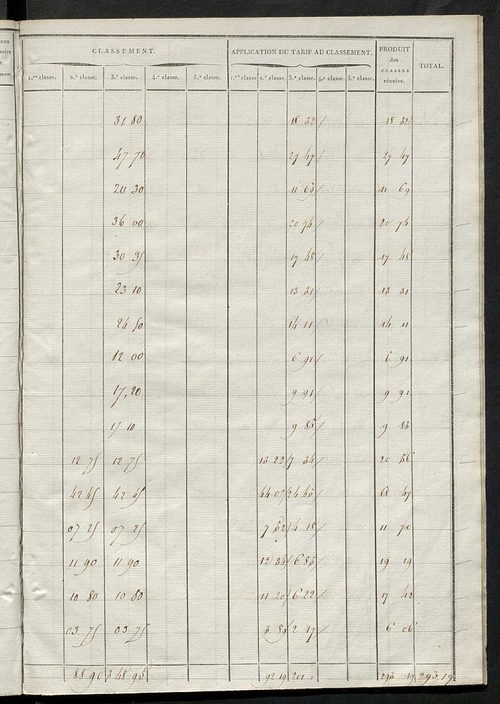 CLASSEMENT. APPLICATION DU TARIF AU CLASSEMENT. PRODUIT des CLASSES réunies. TOTAL.
1.re classe. 2.e classe. 3.e classe. 4.e classe. 5.e classe. 1.re classe 2.e classe. 3.e classe. 4.e classe. 5.e classe.
31 80 18 32 18 32
47 70 27 47 27 47
20 30 11 69 11 69
36 00 20 74 20 74
30 35 17 48 17 48
23 10 13 31 13 31
24 50 14 11 14 11
12 00 6 91 6 91
17,20 9 91 9 91
17 10 9 85 9 85
12 75 12 75 13 22 7 34 20 56
42 45 42 45 44 02 24 45 68 47
07 25 07 25 7 52 4 18 11 70
11 90 11 90 12 34 6 85 19 19
10 80 10 80 11 20 6 22 17 42
03 75 03 75 3 89 2 17 6 06
88 90 348 95 92 19 201 293 19 293,19